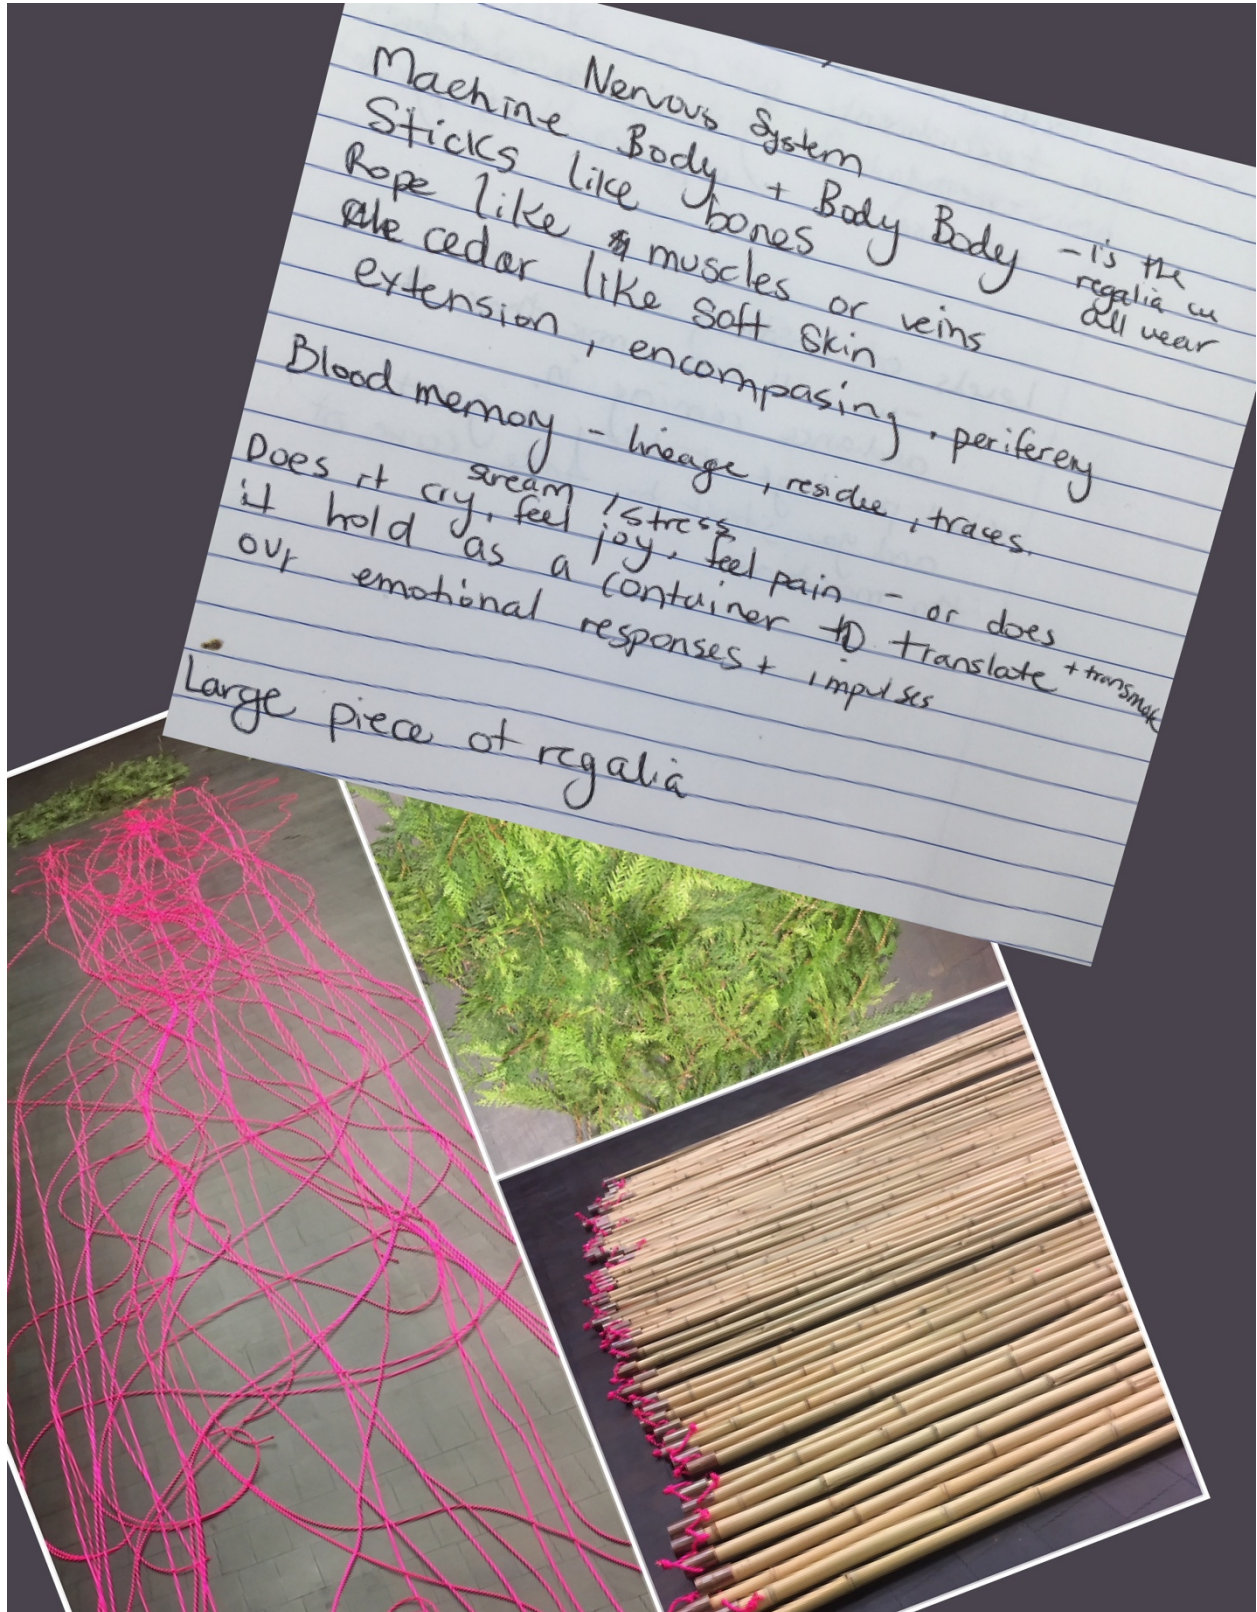 Nervous System
Machine Body + Body Body - is the
regalia we
all wear
Sticks like bones
Rope like muscles or veins
cedar like soft skin
extension, encompasing, perifereny
Blood memory - lineage, residue, traces.
scream / stress
Does it cry, feel joy, feel pain - or does
it hold as a container to translate + transmute
our emotional responses + impulses
Large piece of regalia